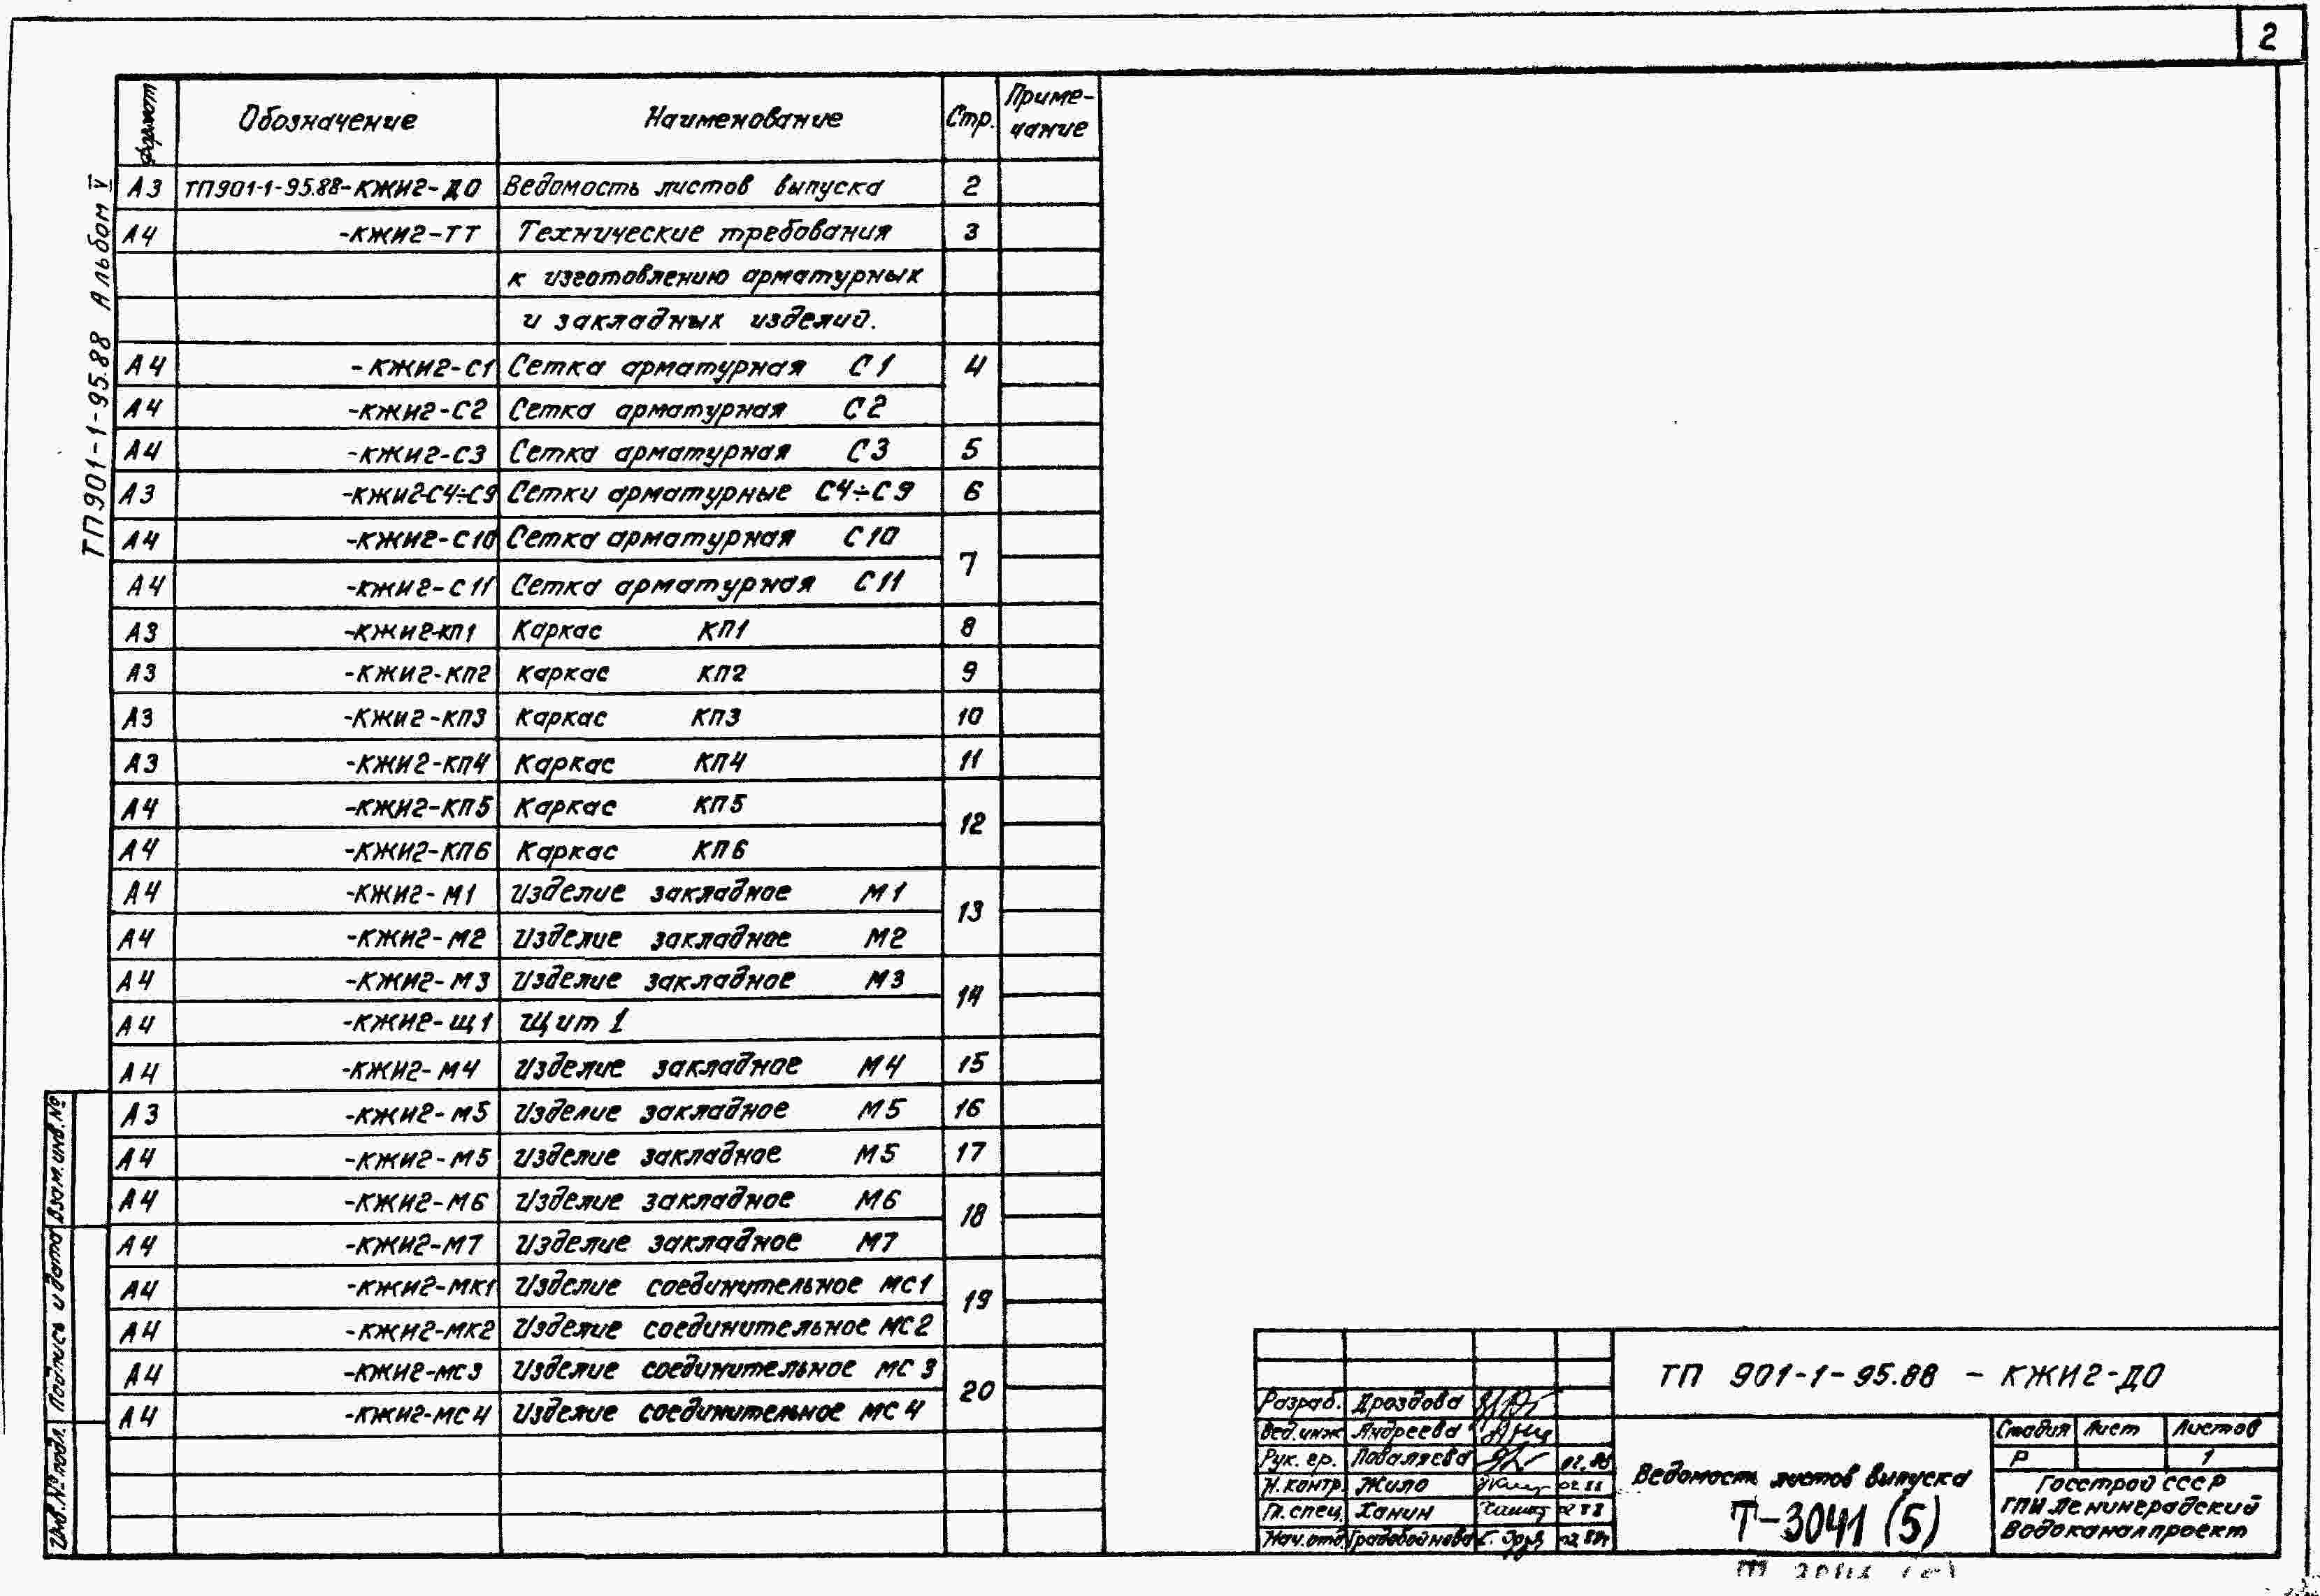 2
Формат Обозначение Наименование Стр. Приме-
чание
А3 ТП901-1-95.88-КЖИ2-ДО Ведомость листов выпуска 2
А4 -КЖИ2-ТТ Технические требования 3
к изготовлению арматурных
и закладных изделий.
А4 -КЖИ2-С1 Сетка арматурная С1 4
А4 -КЖИ2-С2 Сетка арматурная С2
А4 -КЖИ2-С3 Сетка арматурная С3 5
А3 -КЖИ2-С4÷С9 Сетки арматурные С4÷С9 6
А4 -КЖИ2-С10 Сетка арматурная С10 7
А4 -КЖИ2-С11 Сетка арматурная С11
А3 -КЖИ2-КП1 Каркас КП1 8
А3 -КЖИ2-КП2 Каркас КП2 9
А3 -КЖИ2-КП3 Каркас КП3 10
А3 -КЖИ2-КП4 Каркас КП4 11
А4 -КЖИ2-КП5 Каркас КП5 12
А4 -КЖИ2-КП6 Каркас КП6
А4 -КЖИ2-М1 Изделие закладное М1 13
А4 -КЖИ2-М2 Изделие закладное М2
А4 -КЖИ2-М3 Изделие закладное М3 14
А4 -КЖИ2-Щ1 Щит 1
А4 -КЖИ2-М4 Изделие закладное М4 15
А3 -КЖИ2-М5 Изделие закладное М5 16
А4 -КЖИ2-М5 Изделие закладное М5 17
А4 -КЖИ2-М6 Изделие закладное М6 18
А4 -КЖИ2-М7 Изделие закладное М7
А4 -КЖИ2-МК1 Изделие соединительное МС1 19
А4 -КЖИ2-МК2 Изделие соединительное МС2
А4 -КЖИ2-МС3 Изделие соединительное МС3 20
А4 -КЖИ2-МС4 Изделие соединительное МС4
ТП901-1-95.88 Альбом V
Взам.инв.№
Подпись и дата
Инв.№подл.
ТП 901-1-95.88 - КЖИ2-ДО
Разраб. Дроздова
Вед.инж Андреева
Рук. гр. Поваляева 02.88
Н.контр. Жило 02 88
Гл.спец. Ханин 02 88
Нач.отд. Градобойнова 02.88г
Ведомость листов выпуска
Т-3041 (5)
Стадия Лист Листов
Р 1
Госстрой СССР
ГПИ Ленинградский
Водоканалпроект